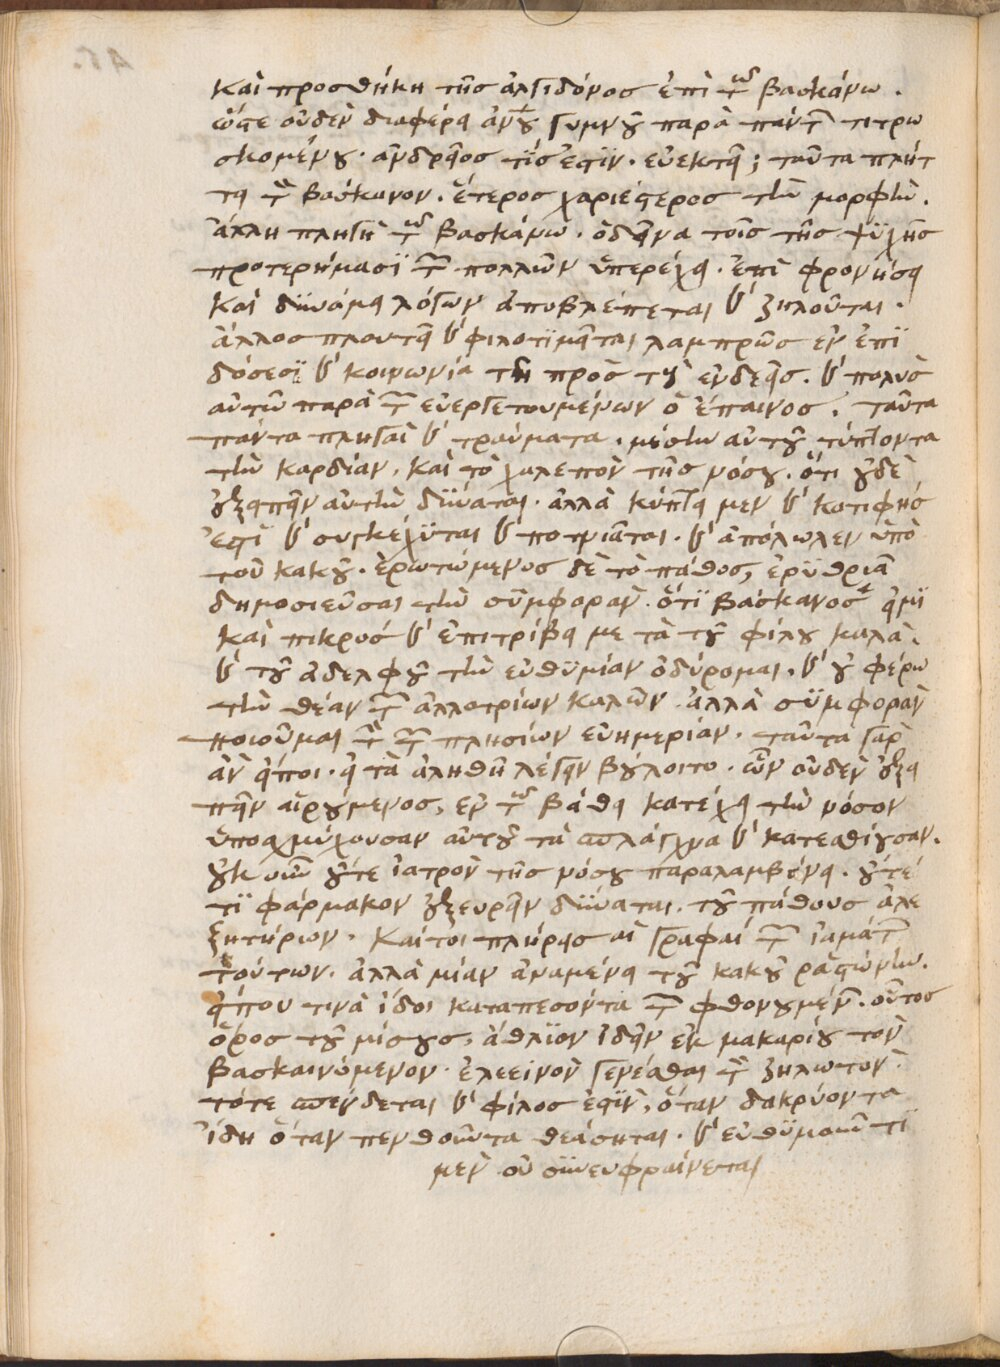 καὶ προσθήκη τῆς ἀλγιδόνος ἐπὶ τῶ βασκάνω.
ὥστε οὐδὲν διαφέρει ἀνου γυμνοῦ παρὰ πάντων τιτρω
σκομένου. ἀνδρεῖος τίς ἐστϊν. εὐεκτεῖ; ταῦτα πλήτ
τει τὸν βάσκανον. ἕτερος χαριέστερος τὴν μορφὴν.
ἄλλη πληγὴ τῶ βασκάνω. ὁ δεῖνα τοῖς τῆς ψϋχῆς
προτερήμασϊ τῶν πολλῶν ὑπερέχει. ἐπὶ φρονήσει
καὶ δϋνάμει λόγων ἀποβλέπεται καὶ ζηλοῦται.
ἄλλος πλουτεῖ καὶ φιλοτϊμεῖται λαμπρῶς ἐν ἐπϊ
δόσεσϊ καὶ κοινωνία τῆ πρὸς τοὺς ἐνδεεῖς. καὶ πολὺς
αὐτῶ παρὰ τῶν εὐεργετουμένων ὁ ἔπαινος. ταῦτα
πάντα πληγαὶ καὶ τραύματα. μέσην αὐτοῦ τύπτοντα
τὴν καρδίαν. καὶ τὸ χαλεπὸν τῆς νόσου. ὅτι οὐδὲ
ἐξειπεῖν αὐτὴν δϋναται. ἀλλὰ κύπτει μὲν καὶ κατιφής
ἐστὶ καὶ συγκέχϋται καὶ ποτνιᾶται. καὶ ἀπόλωλεν ὑπὸ
τοῦ κακοῦ. ἐρωτώμενος δὲ τὸ πάθος, ἐρϋθριᾶ
δημοσιεῦσαι τὴν συμφορὰν. ὅτϊ βάσκανος εἰμϊ
καὶ πικρὸς καὶ ἐπιτρίβει με τὰ τοῦ φίλου καλὰ.
καὶ τοῦ ἀδελφοῦ τὴν εὐθϋμίαν ὀδύρομαι, καὶ οὐ φέρω
τὴν θέαν τῶν ἀλλοτρίων καλῶν. ἀλλὰ σϋμφορὰν
ποιοῦμαι τὴν τῶν πλησίων εὐημερίαν. ταῦτα γὰρ
ἂν εἴποι. εἰ τὰ ἀληθῆ λέγειν βούλοιτο. ὧν οὐδὲν ἐξει
πεῖν αἱρούμενος, ἐν τῶ βάθει κατέχει τὴν νόσον
ὑποσμύχουσαν αὐτοῦ τὰ σπλάγχνα καὶ κατεσθίουσαν.
οὐκοῦν οὔτε ἰατρὸν τῆς νόσου παραλαμβάνει. οὔτέ
τϊ φάρμακον ἐξευρεῖν δϋναται τοῦ πάθους ἀλε
ξητήριον. καίτοι πλήρεις αἱ γραφαί τῶν ἰαμάτων
τούτων. ἀλλὰ μίαν ἀναμένει τοῦ κακοῦ ραστώνην.
εἴπου τινὰ ἴδοι καταπεσόντα τῶν φθονουμένων. οὗτος
ὅρος τοῦ μίσους, ἄθλϊον ἰδεῖν ἐκ μακαρίου τὸν
βασκαινόμενον. ἐλεεινὸν γενέσθαι τὸν ζηλωτὸν.
τότε σπένδεται καὶ φίλος ἐστϊν, ὅταν δακρύοντα
ἴδη ὅταν πενθοῦντα θεάσηται. καὶ εὐθϋμοῦντϊ
μὲν οὐ σϋνευφραίνεται